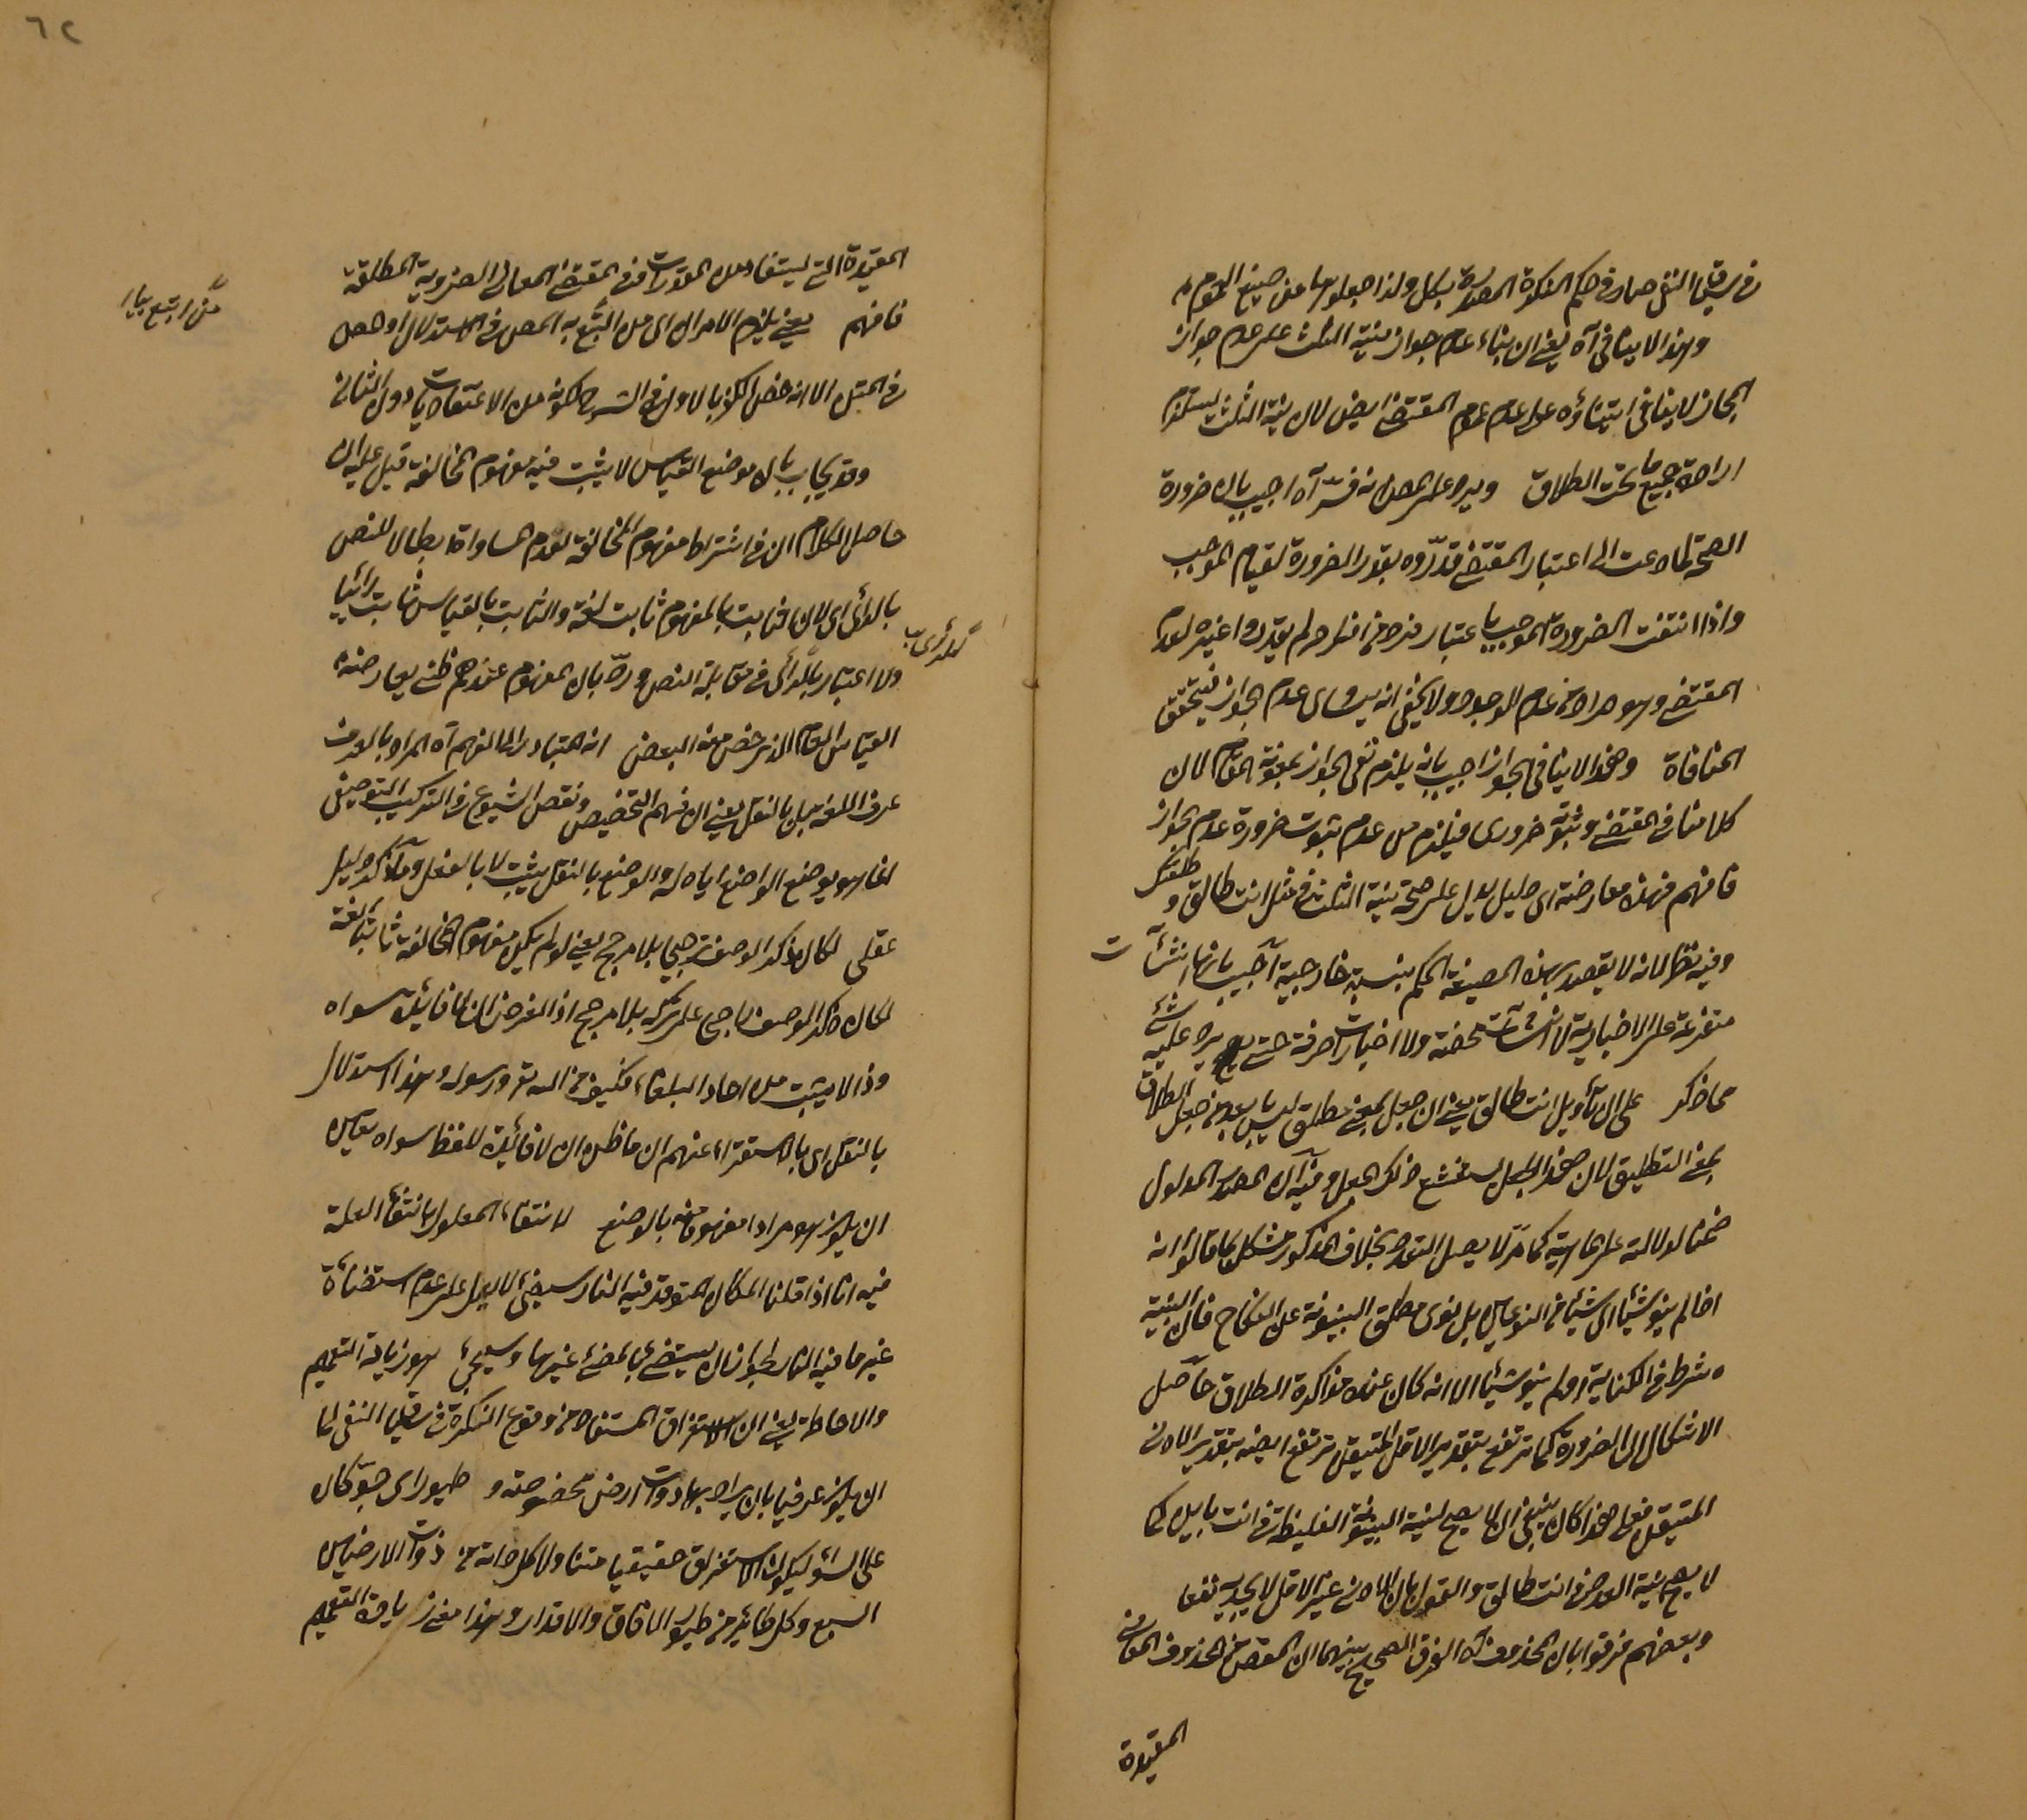 في سياق النفي صار في حكم النكرة المصدرة بكل ولذا جعلوها من صيغ العموم
وهذا لا ينافي آه يعني ان بناء عدم جواز نية الثلث على عدم جواز
المجاز لا ينافي ابتناؤه على عدم عموم المقتضى ايضا لان نية الثلث يستلزم
ارادة جميع ما تحت الطلاق ويرد على المص انه فسر آه اجيب بان ضرورة
الصحة لما دعت الى اعتبار المقتضى قدروه بقدر الضرورة لقيام الموجب
واذا انتفت الضرورة الموجب باعتبار فرد من افراد لم يقدروا غيره لعدم
المقتضى وهو مراده من عدم الوجود ولا يخفى انه يساوى عدم الجواز فيتحقق
المنافاة وهذا لا ينافي الجواز اجيب بانه يلزم نفي الجواز بمعونة المقام لان
كلامنا في المقتضى وثبوته ضرورى فيلزم من عدم ثبوت ضرورة عدم الجواز
فافهم فهذه معارضة اى دليل يدل على صحة نية الثلث في مثل انت طالق و طلقتك
وفيه نظر لانه لا يقصد بهذه الصيغة الحكم بنسبة خارجية آه اجيب بانها انشآت
متفرعة على الاخبارية لا انشآت محضة ولا اخبارات صرفة حتى يرد عليه شئ
مما ذكر على ان تأويل انت طالق يعني ان جعل بمعنى مطلق ليس بابعد من جعل الطلاق
بمعنى التطليق لان هذا الجعل ذلك الجعل وفيه ان المصدر المدلول
ضمنا لدلالته على الماهية كما مر لا يحمل التعدد بخلاف المذكور مشكل بما قالوا انه
اذا لم ينو شيئا اى شيئا من النوعين بل نوى مطلق البينونة عن النكاح فان النية
شرط في الكناية او لم ينو شيئا الا انه كان عنده مذاكرة الطلاق حاصل
الاشكال ان الضرورة كما ترتفع بتقدير الاقل المتيقن ترتفع ايضا بتقدير الادنى
المتيقن فعلى هذا كان ينبغى ان لا يصح نية البينونة الغليظة في انت باين كما
لا يصح نية العدد في انت طالق والقول بان الادنى غير الاقل لا يجديه نفعا
وبعضهم فرقوا بان المحذوف آه الفرق الصحيح بينهما ان المقص من المحذوف المعانى
المقيدة
٦٢
المقيدة التي يستفاد من المقدرات وفي المقتضى المعانى الضرورية المطلقة
فافهم يعنى يلزم الامران اى من اتبع به المص في الاستدلال او هو
في المتن الا انه خص الذكر بالاول في الشرح لكونه من الاعتقاديات دون الثانى
وقد يجاب بان موضع القياس لا يثبت فيه مفهوم المخالفة قيل عليه ان
حاصل الكلام ان في اشتراط مفهوم المخالفة لعدم المساواة ابطالا للنص
بالرأى اى لان الثابت بالمفهوم ثابت لغة والثابت بالقياس ثابت رأيا
ولا اعتبار بالرأى في مقابلة النص ورد بان المفهوم عندهم ظنى يعارضه
القياس العام الذى خص منه البعض انه المتبادر الى الفهم آه المراد بالعرف
عرف اللغة قيل بالنقل يعنى ان فهم التخصيص ونقص الشيوع في التركيب التوصيفى
انما هو بوضع الواضع اياه له والوضع بالنقل يثبت لا بالعقل وما ذكر دليل
عقلى لكان ذكر الوصف ترجيحا بلا مرجح يعنى لو لم يكن مفهوم المخالفة ثابتا لغة
لكان ذكر الوصف راجح على تركه بلا مرجح اذ الفرض ان لا فائدة سواه
وذا لا يثبت من احاد البلغاء فكيف من الله تع ورسوله وهذا استدلال
بالنقل اى بالاستقراء عنهم ان ما ظن ان لا فائدة للفظ سواه يتعين
ان يكون هو مرادا مفهوما منه بالوضع لانتفاء المعلول بانتفاء العلة
فيه انا اذا قلنا المكان المتوقد فيه النار سيضئ لا يدل على عدم استضاءة
غير ما فيه النار لجواز ان يستضئ بمضئ غيرها وسيجئ هو زيادة التعميم
والاحاطة يعنى ان الاستغراق المستفاد من وقوع النكرة في سياق النفى لما
ان يكون عرفيا بان يراد بها دواب ارض مخصوصة و طيور اى جو كان
على السواء ليكون الاستغراق حقيقيا متناولا كل دابة من دواب الارضين
السبع وكل طائر من طيور الآفاق والاقدار وهذا معنى زيادة التعميم